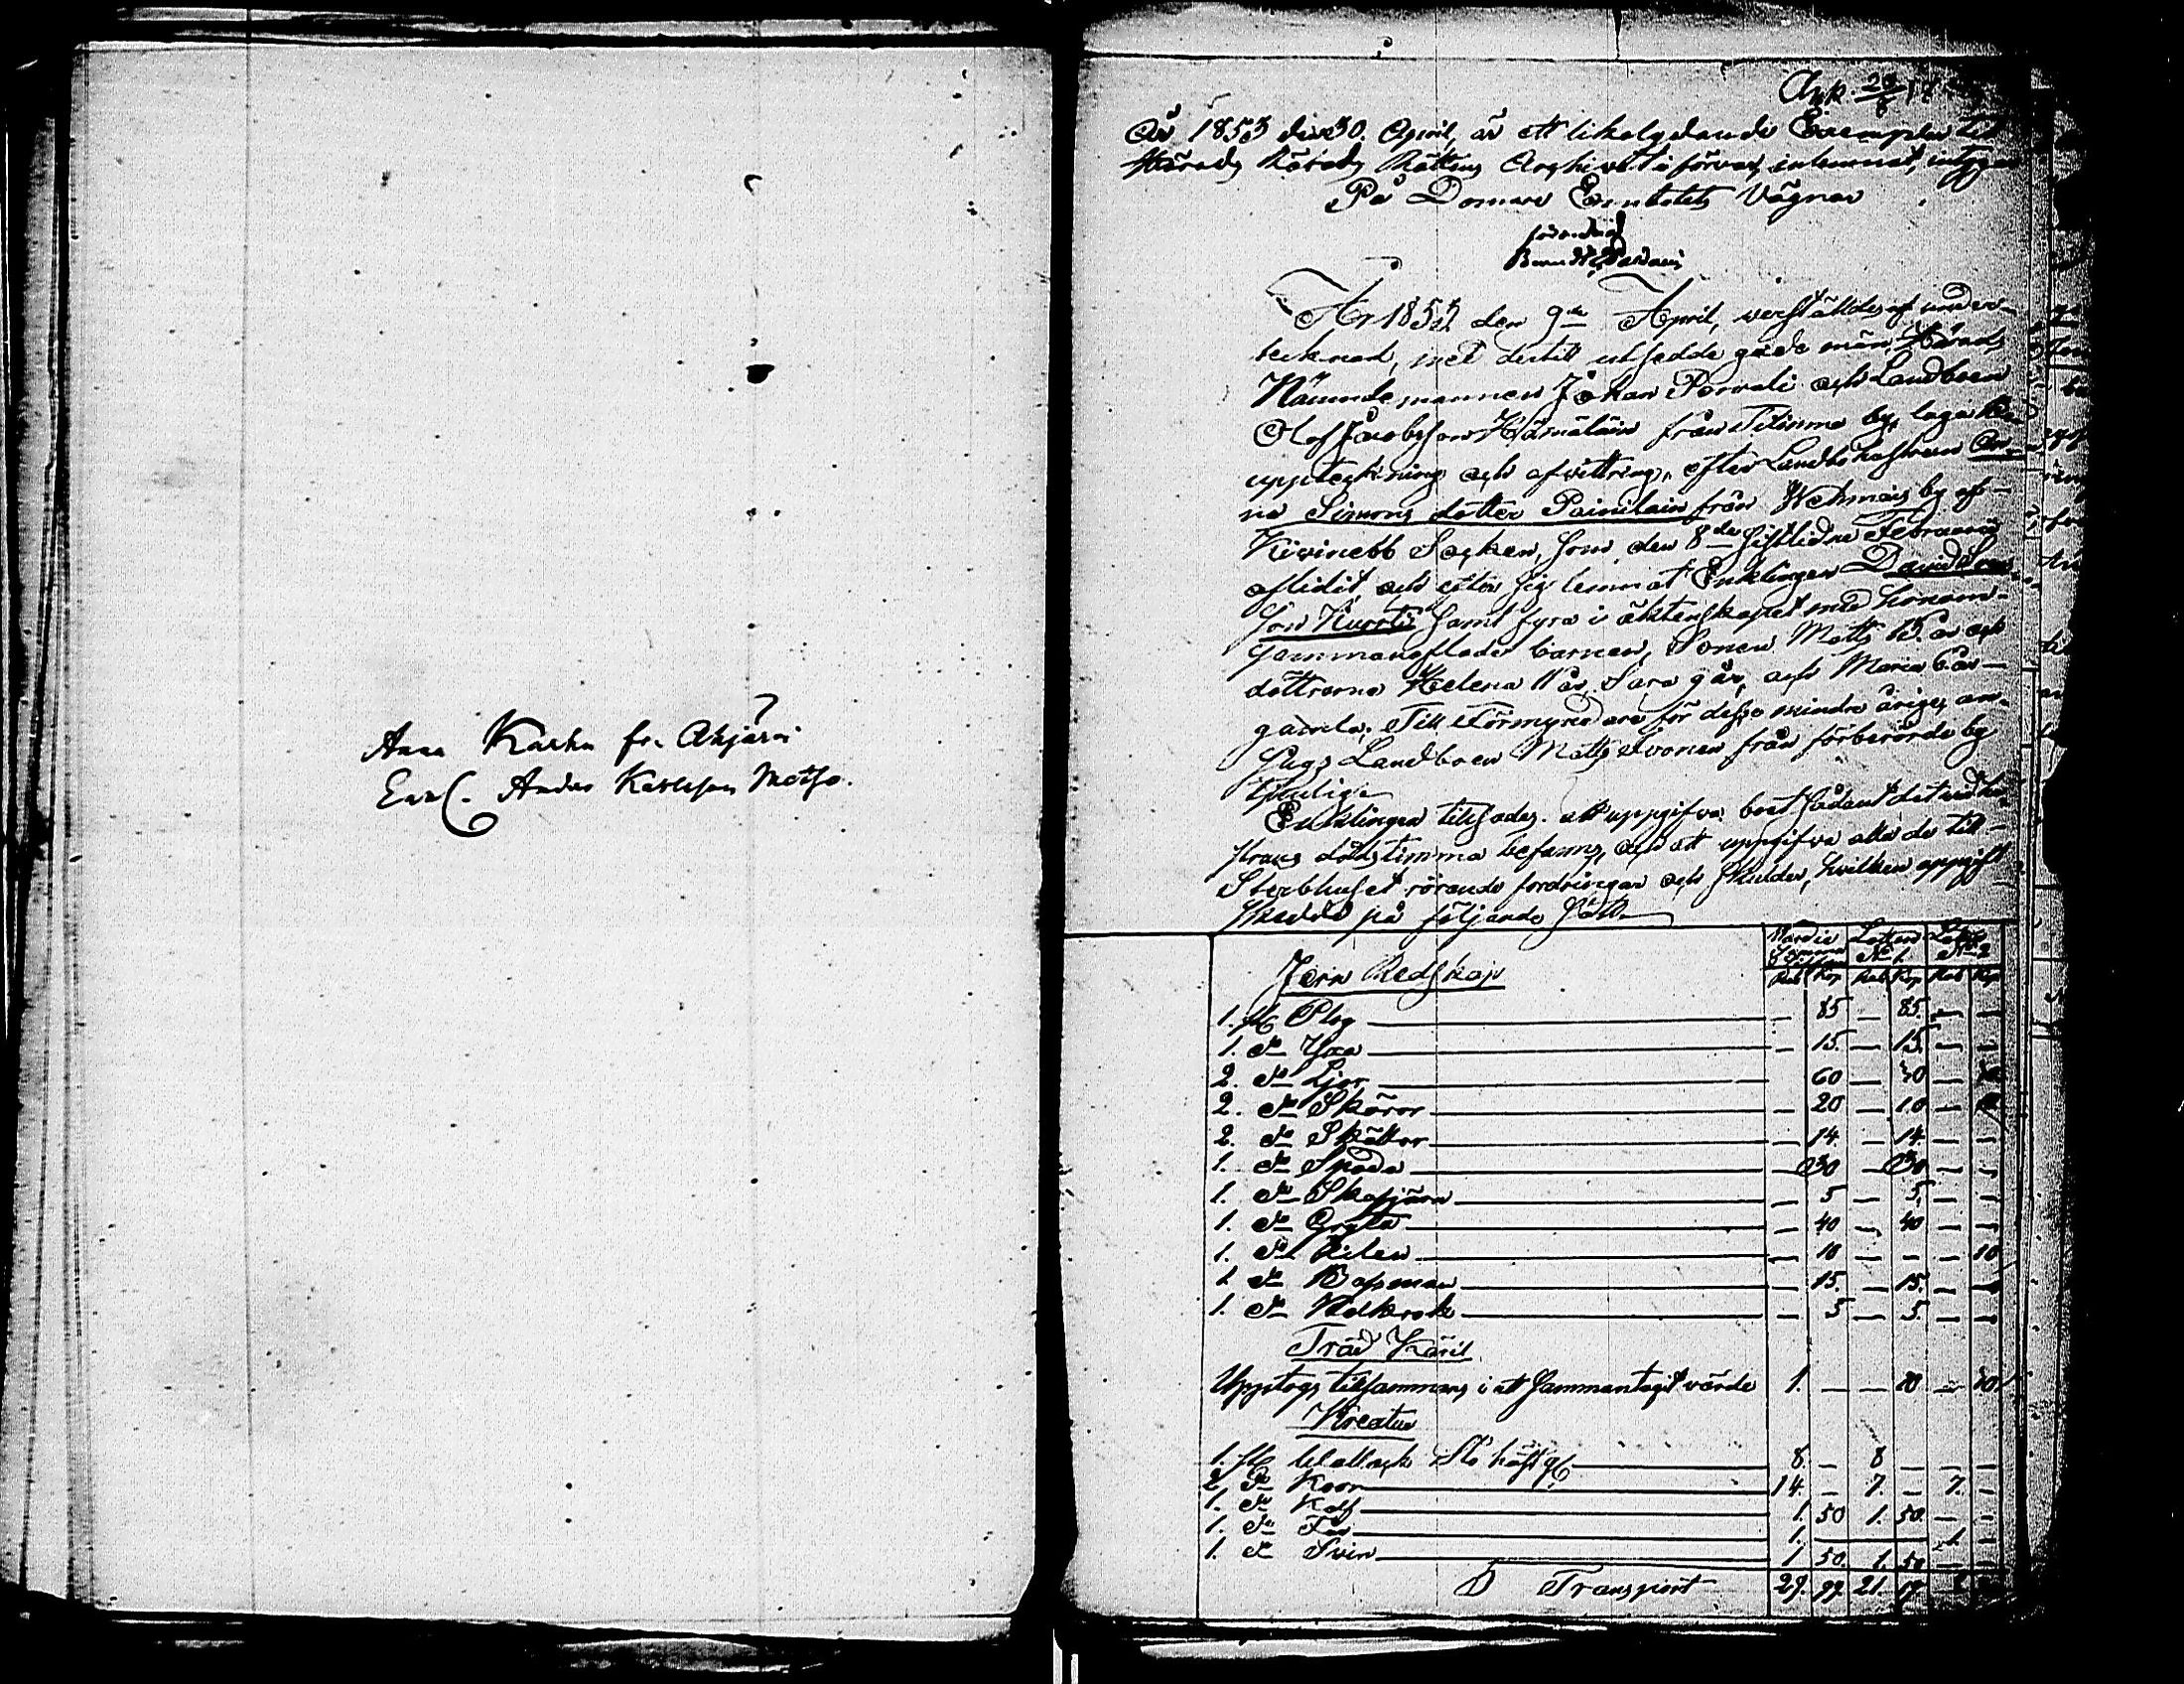 Anna Karhu fr. Ahjärvi
Enkl. Anders Karlsson Matso.
Ank. 29/6
År 1853 den 30. April, är ett likalydande Exemplar till
Härads Rättens Arghivet i förvar inlemnat, intygar
På Domare Embetets Vägnar
År 1853 den 9de April, verställdes af under-
tecknad, med dertill utsedde gode män, Härads
Nämndemannen Johan Porvali och Landboen
Olof Jacobsson Hämäläin från Titinmo by, laga Bo-
uppteckning och afvittring, efter Landbohustrun An-
na Simons dotter Painilain från Wehmais by af
Kivinebb Socken, som den 8de sistlidne Februarii
aflidit, och efter sig lemnat Enklingen David
son Kurtti samt fyra i äktenskapet med honom
sammanaflade barnen, Sonen Matts 15. år och
döttrarna Helena 11 år. Sara 9 år, och Maria 6 år
gamla. Till Förmyndare för desse mindre åriga, an-
sågs Landboen Matts Ivonen från förberörde by
tjenlig.
Enklingen tillsades att uppgifva boet sådant det vid hu-
struns dödstimma befanns, och att uppgifva alla de till
Sterbhuset rörande fordringar och skulder, hvilken uppgift
skedde på följande sätt
Värde i Lotten Lotten
No 1 No 2
Jern Redskap Rub Kop Rub Kop Rub Kop
1. st Plog — 85 — 85. — —
1. do Yxa — 15. — 15. — —
2. do Ljor — 60 — 30 — 30
2. do Skäror — 20 — 10 — 10
2. do Skötlor — 14. — 14 — —
1. do Spada — 30 — 30 — —
1. do Skafjärn — 5 — 5. — —
1. do Gryta — 40 — 40 — —
1. do Bilen — 10 — — — 10
1. do Bössman — 15. — 15. — —
1. do Kolkrok — 5 — 5. — —
Träd Käril
Upptogs tillsammans i ett sammantagit värde 1. — — 80 — 20
Kreatur
1. st Wallach Stö häst 8. — 8 — — —
2 do Koor 14. — 7. — 7. —
1. do Kalf 1. 50 1. 50. — —
1. do Får 1. — — — 1. —
1. do Svin 1 50. 1. 50 — —
Transport 29. 99. 21. 19.